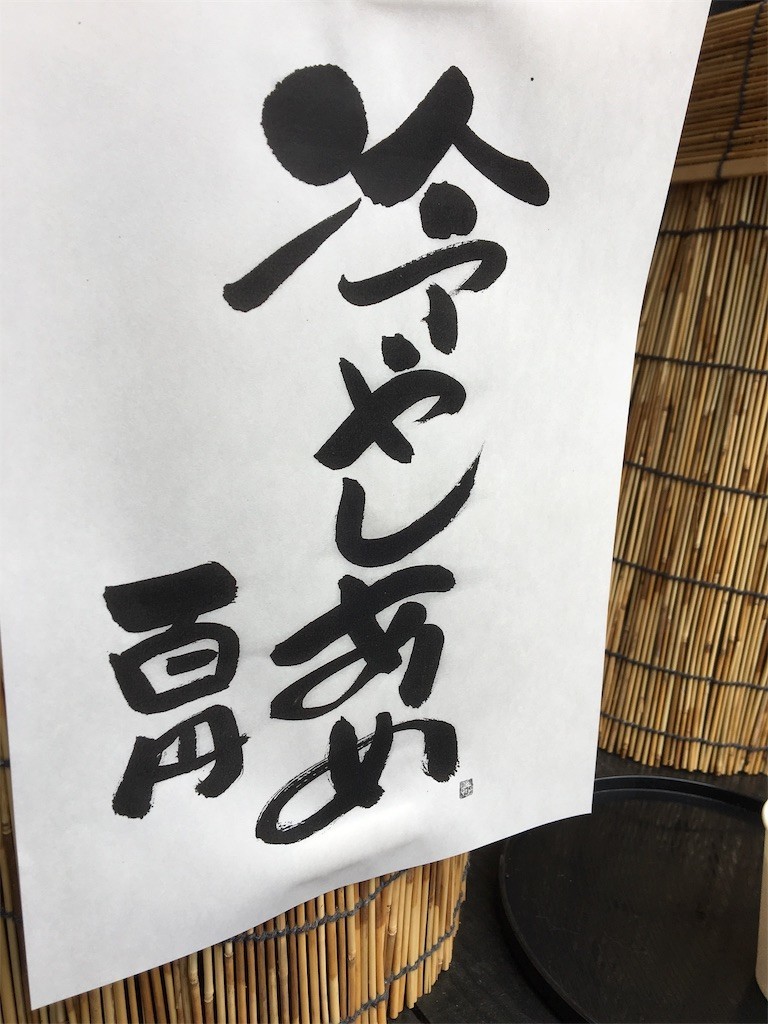 冷やしあめ
百円